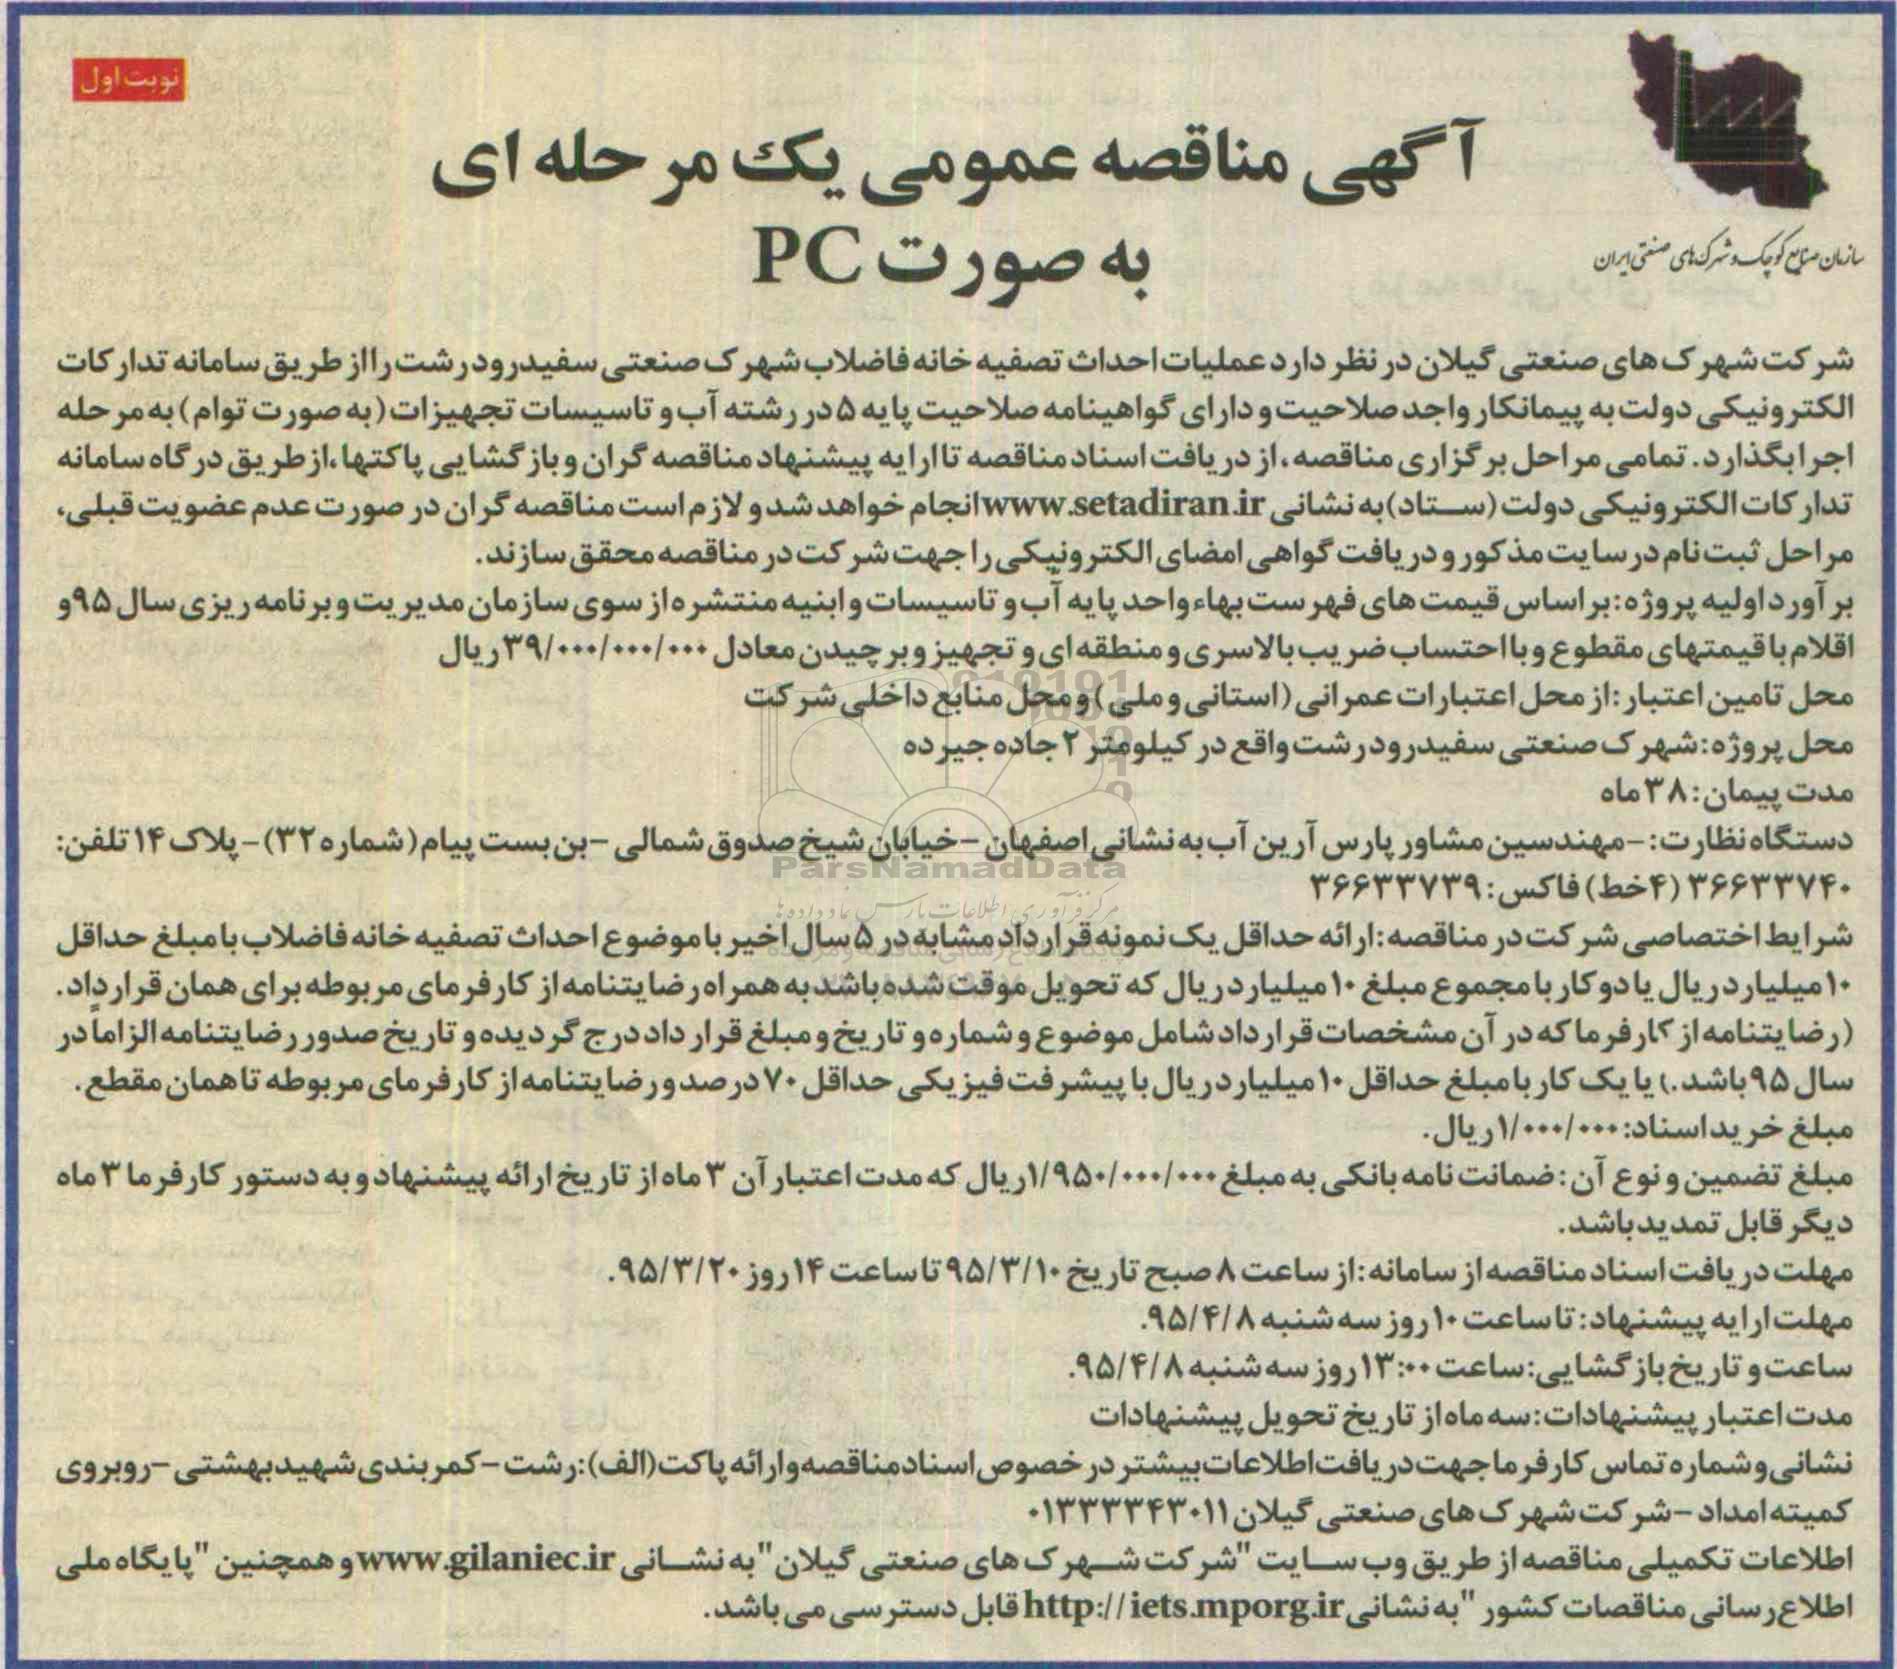 نوبت اول
سازمان صنایع کوچک و شهرک‌های صنعتی ایران
آگهی مناقصه عمومی یک مرحله ای
به صورت PC
شرکت شهرک های صنعتی گیلان در نظر دارد عملیات احداث تصفیه خانه فاضلاب شهرک صنعتی سفیدرود رشت را از طریق سامانه تدارکات
الکترونیکی دولت به پیمانکار واجد صلاحیت و دارای گواهینامه صلاحیت پایه ۵ در رشته آب و تاسیسات تجهیزات (به صورت توام) به مرحله
اجرا بگذارد. تمامی مراحل برگزاری مناقصه، از دریافت اسناد مناقصه تا ارایه پیشنهاد مناقصه گران و بازگشایی پاکتها، از طریق درگاه سامانه
تدارکات الکترونیکی دولت (ستاد) به نشانی www.setadiran.ir انجام خواهد شد و لازم است مناقصه گران در صورت عدم عضویت قبلی،
مراحل ثبت نام در سایت مذکور و دریافت گواهی امضای الکترونیکی را جهت شرکت در مناقصه محقق سازند.
برآورد اولیه پروژه: براساس قیمت های فهرست بهاء واحد پایه آب و تاسیسات و ابنیه منتشره از سوی سازمان مدیریت و برنامه ریزی سال ۹۵ و
اقلام با قیمتهای مقطوع و با احتساب ضریب بالاسری و منطقه ای و تجهیز و برچیدن معادل ۳۹/۰۰۰/۰۰۰/۰۰۰ ریال
محل تامین اعتبار: از محل اعتبارات عمرانی (استانی و ملی) و محل منابع داخلی شرکت
محل پروژه: شهرک صنعتی سفیدرود رشت واقع در کیلومتر ۲ جاده جیرده
مدت پیمان: ۳۸ ماه
دستگاه نظارت: -مهندسین مشاور پارس آرین آب به نشانی اصفهان -خیابان شیخ صدوق شمالی -بن بست پیام (شماره ۳۲) - پلاک ۱۴ تلفن:
۳۶۶۳۳۷۴۰ (۴خط) فاکس: ۳۶۶۳۳۷۳۹
شرایط اختصاصی شرکت در مناقصه: ارائه حداقل یک نمونه قرارداد مشابه در ۵ سال اخیر با موضوع احداث تصفیه خانه فاضلاب با مبلغ حداقل
۱۰ میلیارد ریال یا دو کار با مجموع مبلغ ۱۰ میلیارد ریال که تحویل موقت شده باشد به همراه رضایتنامه از کارفرمای مربوطه برای همان قرارداد.
(رضایتنامه از کارفرما که در آن مشخصات قرارداد شامل موضوع و شماره و تاریخ و مبلغ قرارداد درج گردیده و تاریخ صدور رضایتنامه الزاماً در
سال ۹۵ باشد.) یا یک کار با مبلغ حداقل ۱۰ میلیارد ریال با پیشرفت فیزیکی حداقل ۷۰ درصد و رضایتنامه از کارفرمای مربوطه تا همان مقطع.
مبلغ خرید اسناد: ۱/۰۰۰/۰۰۰ ریال.
مبلغ تضمین و نوع آن: ضمانت نامه بانکی به مبلغ ۱/۹۵۰/۰۰۰/۰۰۰ ریال که مدت اعتبار آن ۳ ماه از تاریخ ارائه پیشنهاد و به دستور کارفرما ۳ ماه
دیگر قابل تمدید باشد.
مهلت دریافت اسناد مناقصه از سامانه: از ساعت ۸ صبح تاریخ ۹۵/۳/۱۰ تا ساعت ۱۴ روز ۹۵/۳/۲۰.
مهلت ارایه پیشنهاد: تا ساعت ۱۰ روز سه شنبه ۹۵/۴/۸.
ساعت و تاریخ بازگشایی: ساعت ۱۳:۰۰ روز سه شنبه ۹۵/۴/۸.
مدت اعتبار پیشنهادات: سه ماه از تاریخ تحویل پیشنهادات
نشانی و شماره تماس کارفرما جهت دریافت اطلاعات بیشتر در خصوص اسناد مناقصه و ارائه پاکت (الف): رشت -کمربندی شهید بهشتی -روبروی
کمیته امداد -شرکت شهرک های صنعتی گیلان ۰۱۳۳۳۳۴۳۰۱۱
اطلاعات تکمیلی مناقصه از طریق وب سایت "شرکت شهرک های صنعتی گیلان" به نشانی www.gilaniec.ir و همچنین "پایگاه ملی
اطلاع رسانی مناقصات کشور" به نشانی http://iets.mporg.ir قابل دسترسی می باشد.
ParsNamadData
مرکز فرآوری اطلاعات پارس نماد داده ها